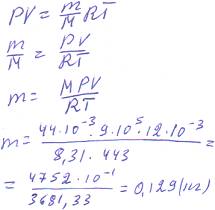 PV = m/M RT
m/M = PV/RT
m = MPV/RT
m = 44·10⁻³·9·10⁵·12·10⁻³/8,31·443 =
= 4752·10⁻¹/3681,33 = 0,129(кг)